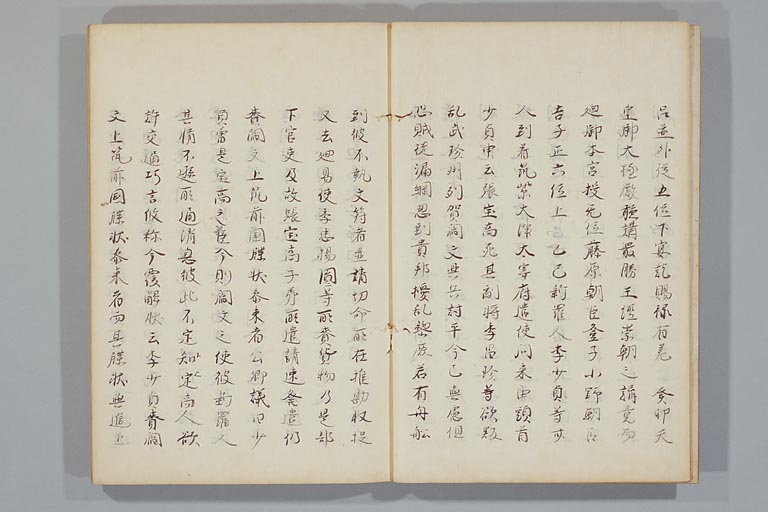 呂並外従五位下宴訖賜禄有差　癸卯天
皇御大極殿聴講最勝王經崇朝之講竟而
廻御本宮授无位藤原朝臣童子小野朝臣
吉子正六位上　乙巳新羅人李少貞等卌
人到着筑紫大津太宰府遣使問来由頭首
少貞申云張宝高死其副将李昌珍等欲叛
乱武珍州列賀閻文興兵討平今已無虞但
恐賊徒漏網忽到貴邦擾乱黎庶若有舟舩
到彼不執文符者並請切命所在推勘収捉
又去廻易使李忠揚圓等所賫貨物乃是部
下官吏及故張宝高子弟所遺請速発遣仍
賫閻文上筑前國牒状参来者公卿議曰少
貞曽是宝高之臣今則閻文之使彼新羅人
其情不遜所通消息彼此不定知定商人欲
許交通巧言攸称今覆解状云李少貞賫閻
文上筑前国牒状参来者而其牒状無進上